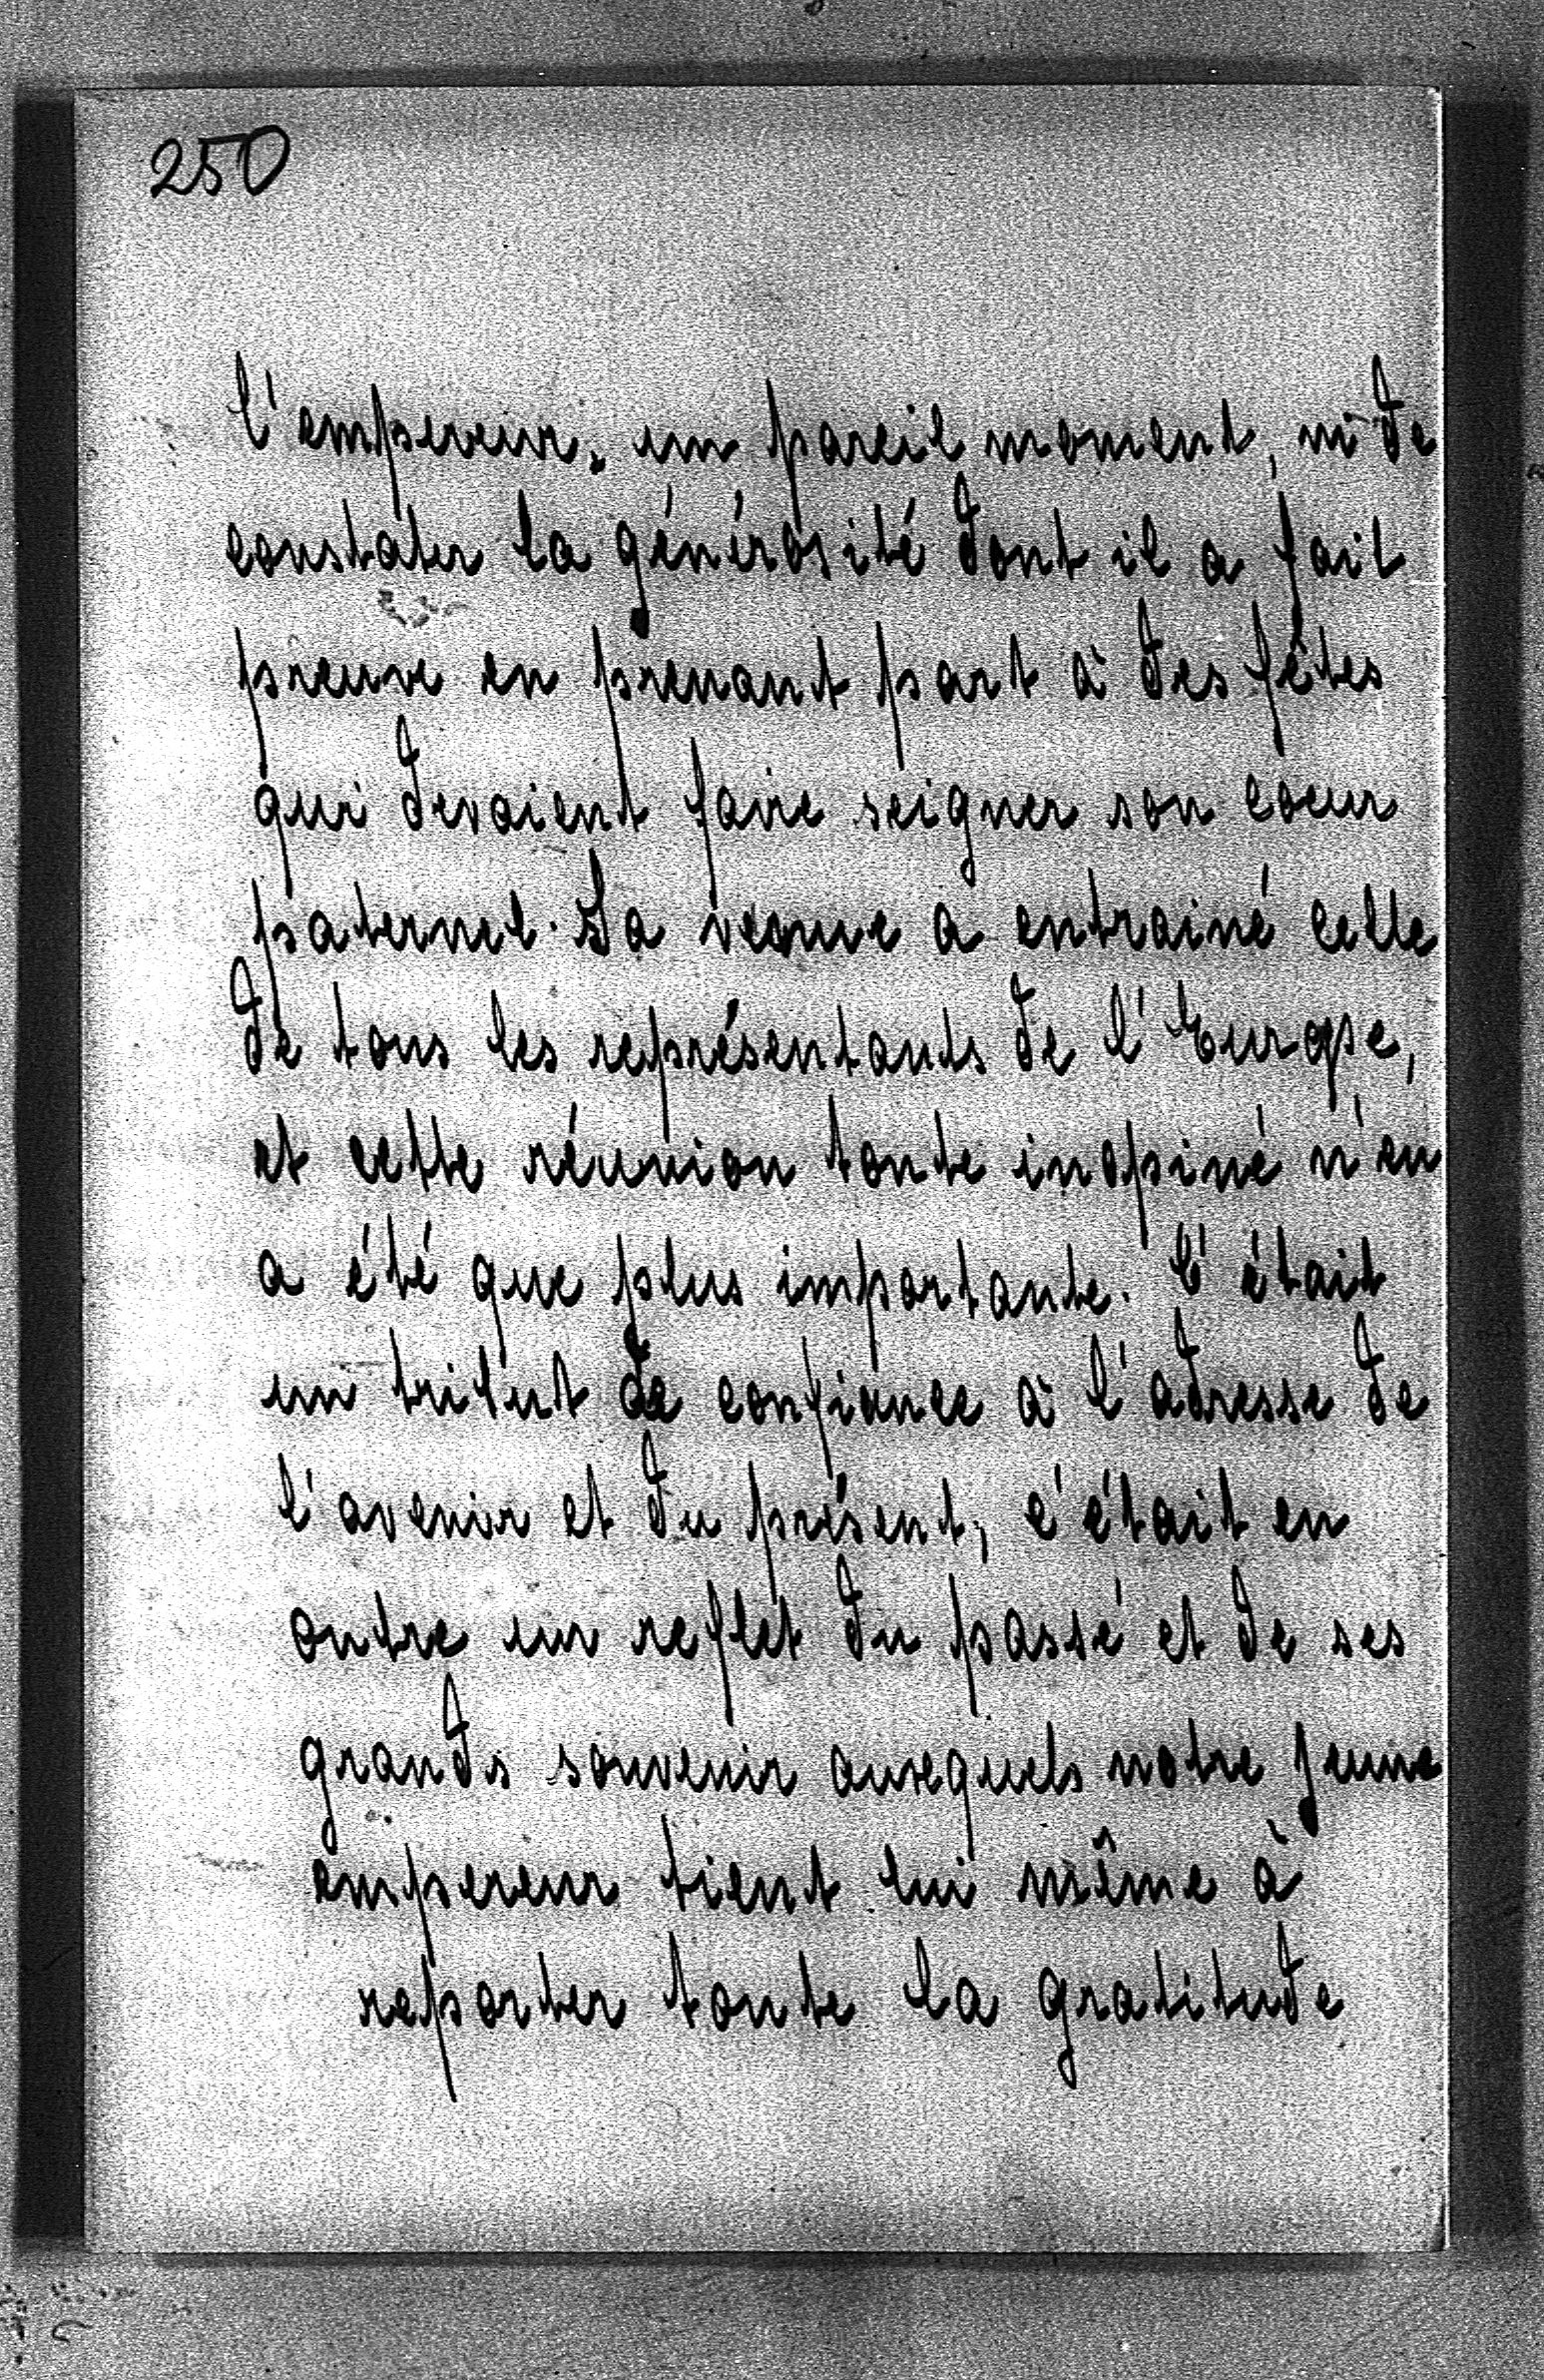 250
l'empereur, un pareil moment, ni de
constater la générosité dont il a fait
preuve en prenant part à des fêtes
qui devaient faire seigner son coeur
paternel. Sa venue a entrainé celle
de tous les représentants de l'Europe,
et cette réunion toute inopiné n'en
a été que plus importante. C'était
un tribut de confiance à l'adresse de
l'avenir et du présent; c'était en
outre un reflet du passé et de ses
grands souvenir auxquels notre jeune
empereur tient lui même à
reporter toute la gratitude